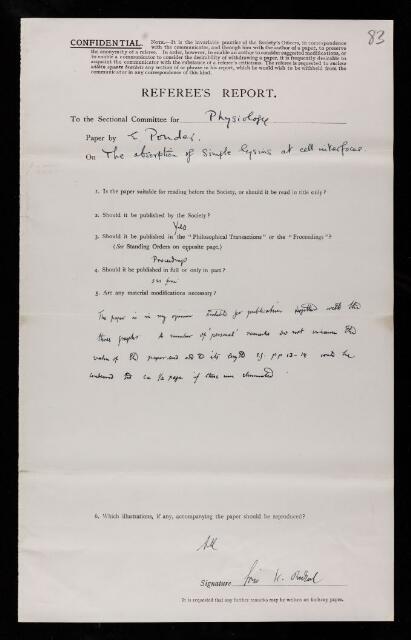 83
CONFIDENTIAL. NOTE.—It is the invariable practice of the Society's Officers, in correspondence
with the communicator, and through him with the author of a paper, to preserve
the anonymity of a referee. In order, however, to enable an author to consider suggested modifications, or
to enable a communicator to consider the desirability of withdrawing a paper, it is frequently desirable to
acquaint the communicator with the substance of a referee's criticisms. The referee is requested to enclose
within square brackets any section of or phrase in his report, which he would wish to be withheld from the
communicator in any correspondence of this kind.
REFEREE'S REPORT.
To the Sectional Committee for Physiology
Paper by E Ponder.
On The absorption of simple lysins at cell interfaces
1. Is the paper suitable for reading before the Society, or should it be read in title only?
2. Should it be published by the Society?
Yes
3. Should it be published in the "Philosophical Transactions" or the "Proceedings"?
(See Standing Orders on opposite page.)
Proceedings
4. Should it be published in full or only in part?
5. Are any material modifications necessary?
The paper is in my opinion suitable for publication together with the
three graphs. A number of 'personal' remarks do not increase the
value of the paper and add to its length e.g. pp 13-14 could be
condensed to 1/2 page if these were eliminated.
6. Which illustrations, if any, accompanying the paper should be reproduced?
All
Signature Eric K. Rideal
It is requested that any further remarks may be written on foolscap paper.